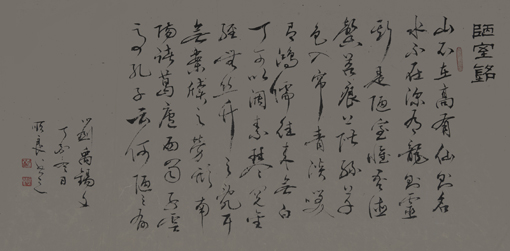 陋室銘
山不在高有仙則名
水不在深有龍則靈
斯是陋室惟吾德
馨苔痕上階綠草
色入帘青談笑
有鴻儒往來無白
丁可以調素琴閱金
經無絲竹之亂耳
無案牘之勞形南
陽諸葛廬西蜀子雲
亭孔子云何陋之有
劉禹錫文
丁亥冬日